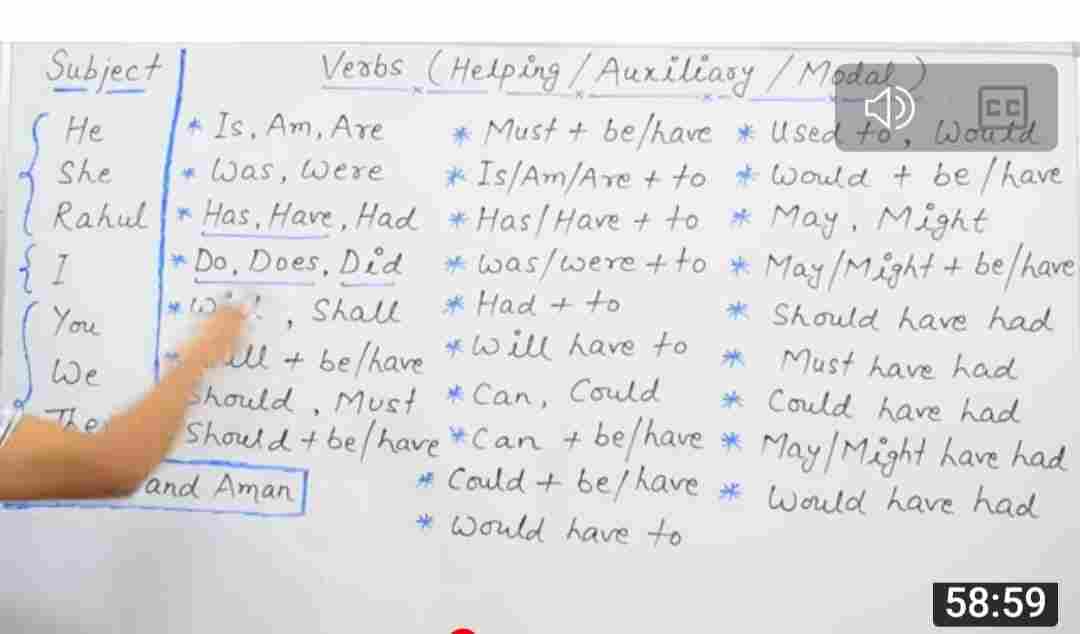 Subject
Verbs (Helping/Auxiliary/Modal)
He
She
Rahul
I
You
We
* Is, Am, Are
* Was, Were
* Has, Have, Had
* Do, Does, Did
* , Shall
+ be/have
Should, Must
Should + be/have
and Aman
* Must + be/have
* Is/Am/Are + to
* Has/Have + to
* Was/were + to
* Had + to
* Will have to
* Can, Could
* Can + be/have
* Could + be/have
* Would have to
* Used to, Would
* Would + be/have
* May, Might
* May/Might + be/have
* Should have had
* Must have had
* Could have had
* May/Might have had
* Would have had
CC
58:59